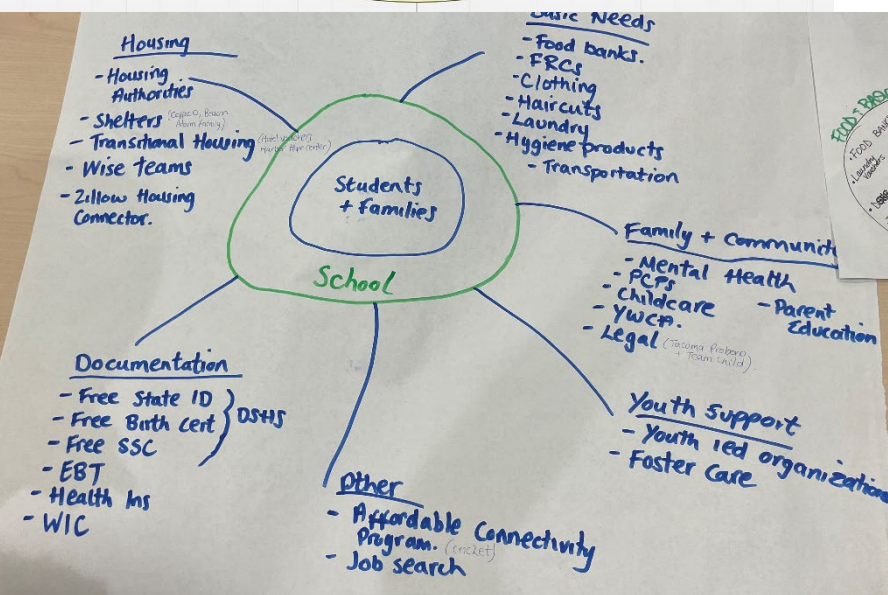 Housing
- Housing
Authorities
- Shelters
- Transitional Housing
- Wise teams
- Zillow Housing
Connector.
Basic Needs
- Food banks.
- FRCs
- Clothing
- Haircuts
- Laundry
- Hygiene products
- Transportation
Students
+ Families
School
Family + Communit
- Mental Health
- PCPs
- Childcare
- YWCA.
- Legal (Tacoma Probono
+ Team Child)
- Parent
Education
Youth Support
- Youth led organizations
- Foster Care
Documentation
- Free State ID
- Free Birth Cert
- Free SSC
DSHS
- EBT
- Health Ins
- WIC
Other
- Affordable Connectivity
Program. (cricket)
- Job search
FOOD & BAS
• FOOD BANK
• Laundry
Vouchers